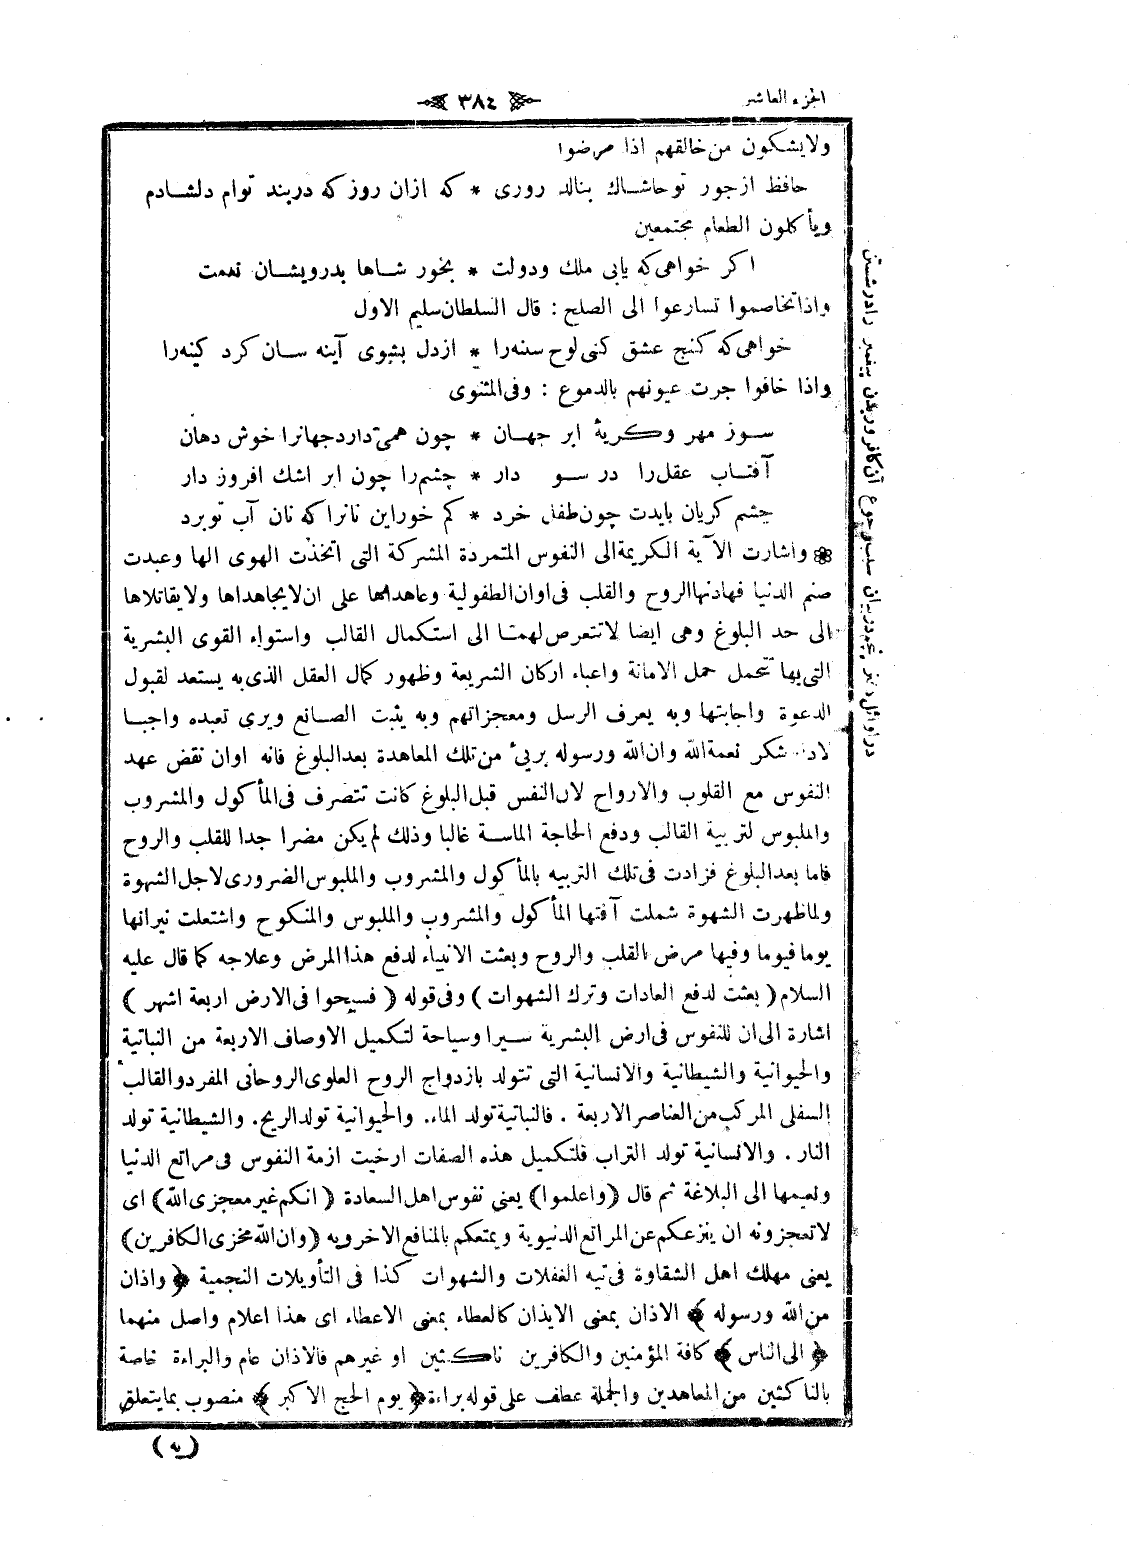 الجزء العاشر
٣٨٤
ولايشكون من خالقهم اذا مرضوا
حافظ ازجور توحاشاك بنالد روزى * كه ازان روزكه دربند توام دلشادم
ويأكلون الطعام مجتمعين
اكر خواهى‌كه يابى ملك ودولت * بخور شاها بدرويشان نعمت
واذاتخاصموا تسارعوا الى الصلح : قال السلطان‌سليم الاول
خواهى‌كه كنج عشق كنى لوح سينه‌را * ازدل بشوى آينه سان كرد كينه‌را
واذا خافوا جرت عيونهم بالدموع : وفى‌المثنوى
سوز مهر وكريۀ ابر جهان * چون همى‌داردجهانرا خوش دهان
آفتاب عقل‌را در سو دار * چشم‌را چون ابر اشك افروز دار
چشم كريان بايدت چون‌طفل خرد * كم خوراين نانراكه نان آب توبرد
واشارت الآية الكريمةالى النفوس المتمردة المشركة التى اتخذت الهوى الها وعبدت
صنم الدنيا فهادنهاالروح والقلب فى‌اوان‌الطفولية وعاهداها على ان‌لايجاهداها ولايقاتلاها
الى حد البلوغ وهى ايضا لاتتعرض‌لهمتا الى استكمال القالب واستواء القوى البشرية
التى‌بها تتحمل حمل الامانة واعباء اركان الشريعة وظهور كمال العقل الذى‌به يستعد لقبول
الدعوة واجابتها وبه يعرف الرسل ومعجزاتهم وبه يثبت الصانع ويرى تعبده واجبا
لاداء شكر نعمةالله وان‌الله ورسوله برئ من‌تلك المعاهدة بعدالبلوغ فانه اوان نقض عهد
النفوس مع القلوب والارواح لان‌النفس قبل‌البلوغ كانت تتصرف فى‌المأكول والمشروب
والملبوس لتربية القالب ودفع الحاجة الماسة غالبا وذلك لم‌يكن مضرا جدا للقلب والروح
فاما بعدالبلوغ فزادت فى‌تلك التربيه بالمأكول والمشروب والملبوس‌الضرورى‌لاجل‌الشهوة
ولماظهرت الشهوة شملت آفتها المأكول والمشروب والملبوس والمنكوح واشتعلت نيرانها
يومافيوما وفيها مرض القلب والروح وبعثت الانبياء لدفع هذاالمرض وعلاجه كما قال عليه
السلام ( بعثت لدفع العادات وترك الشهوات ) وفى‌قوله ( فسيحوا فى‌الارض اربعة اشهر )
اشارة الى‌ان للنفوس فى‌ارض البشرية سيرا وسياحة لتكميل الاوصاف الاربعة من النباتية
والحيوانية والشيطانية والانسانية التى تتولد بازدواج الروح العلوى‌الروحانى المفردوالقالب
السفلى المركب‌من‌العناصرالاربعة . فالنباتيةتولد الماء. والحيوانية تولدالريح. والشيطانية تولد
النار . والانسانية تولد التراب فلتكميل هذه الصفات ارخيت ازمة النفوس فى‌مراتع الدنيا
ونعيمها الى البلاغة ثم قال (واعلموا) يعنى نفوس‌اهل‌السعادة (انكم‌غيرمعجزى‌الله) اى
لاتعجزونه ان ينزعكم‌عن‌المراتع‌الدنيوية ويمتعكم بالمنافع‌الاخرويه (وان‌الله‌مخزى‌الكافرين)
يعنى مهلك اهل الشقاوة فى‌تيه الغفلات والشهوات كذا فى التأويلات النجمية ﴿ واذان
من‌الله ورسوله ﴾ الاذان بمعنى الايذان كالعطاء بمعنى الاعطاء اى هذا اعلام واصل منهما
﴿ الى‌الناس ﴾ كافة المؤمنين والكافرين ناكثين او غيرهم فالاذان عام والبراءة خاصة
بالناكثين من‌المعاهدين والجملة عطف على قوله‌براءة﴿ يوم الحج الاكبر ﴾ منصوب بمايتعلق
( به )